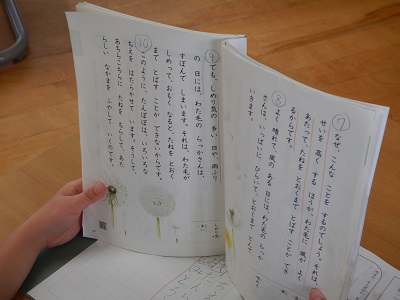 ⑦なぜ、こんな ことを するのでしょう。それは、
せいを 高く する ほうが、わた毛に 風が よく
あたって、たねを とおくまで とばす ことが でき
るからです。
⑧よく 晴れて、風の ある 日には、わた毛の らっか
さんは、いっぱいに ひらいて、とおくまで とんで
いきます。
⑨でも、しめり気の 多い 日や、雨ふり
の 日には、わた毛の らっかさんは、
すぼんで しまいます。それは、わた毛が
しめって、おもく なると、たねを とおく
まで とばす ことが できないからです。
⑩このように、たんぽぽは、いろいろな
ちえを はたらかせて います。そうして、
あちらこちらに たねを ちらして、あた
らしい なかまを ふやして いくのです。